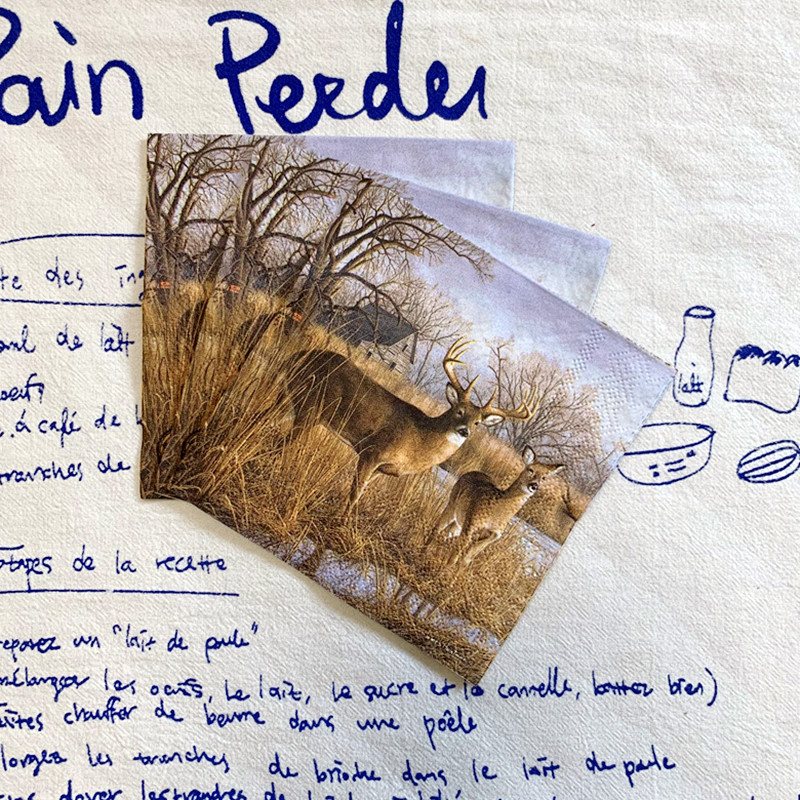 Pain Perdu
te des ing
ml de lait
oeufs
c. à café de
tranches de
lait
étapes de la recette
réparez un "lait de poule"
mélanger les oeufs, le lait, le sucre et la cannelle, battez bien)
aites chauffer de beurre dans une poêle
longez les tranches de brioche dans le lait de poule
dorer les tranches de